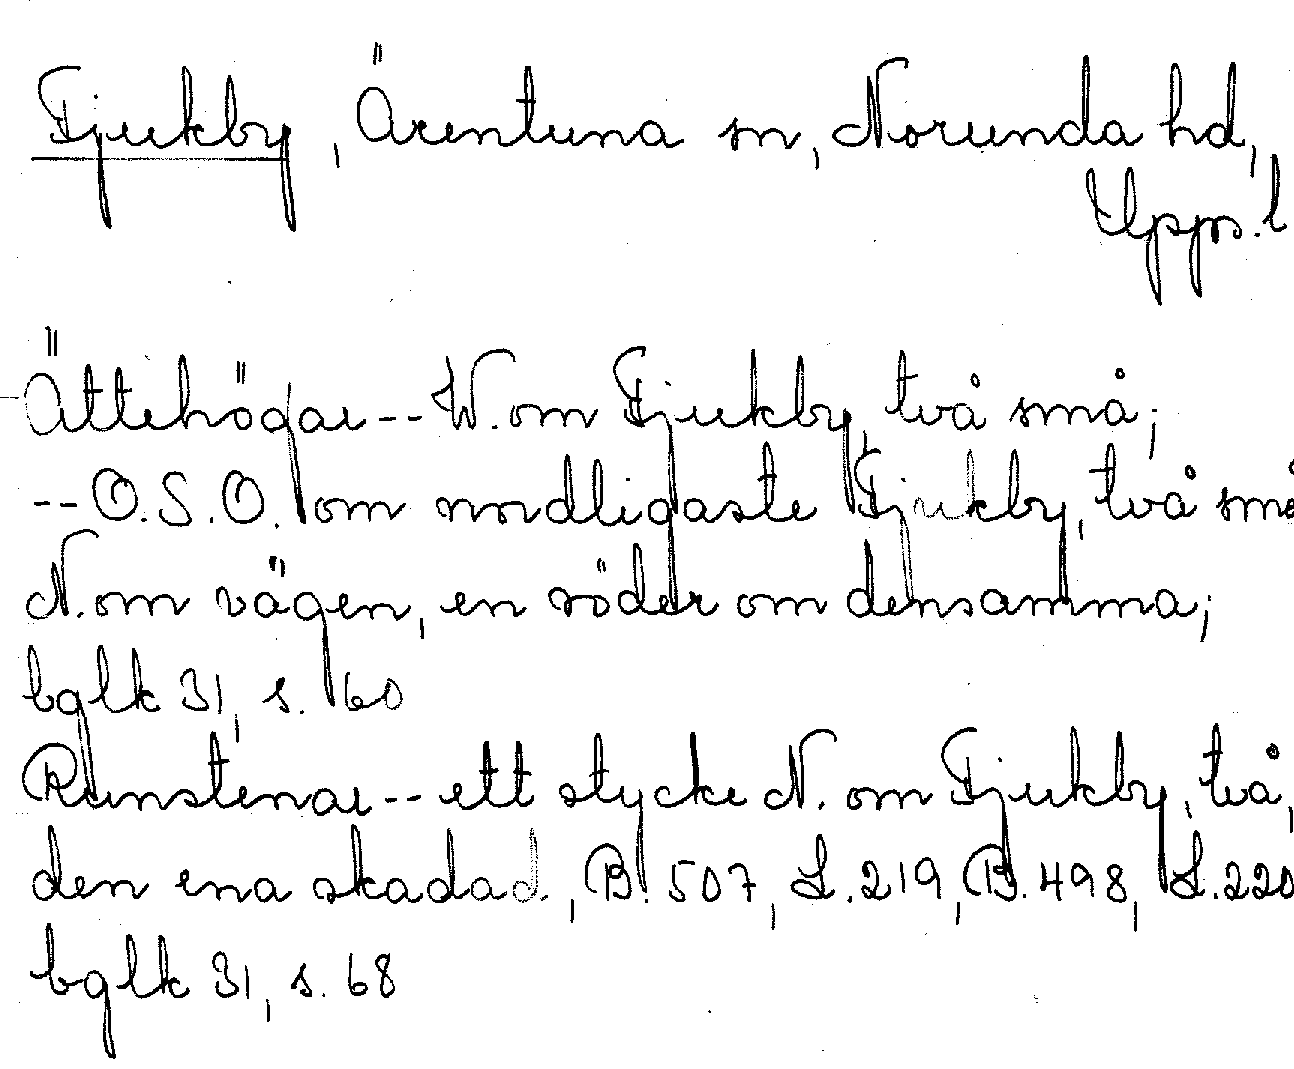 Fjukby, Ärentuna sn, Norunda hd,
Upps. l
Ättehögar -- W. om Fjukby, två små;
-- O.S.O. om nordligaste Fjukby, två små
N. om vägen, en söder om densamma;
bglk 31, s. 60
Runstenar -- ett stycke N. om Fjukby, två,
den ena skadad., B. 507, L. 219, B. 498, L. 220
bglk 31, s. 68